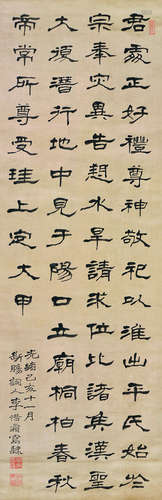 君處正好禮尊神敬祀以淮出平氏始於
宗奉災異告愬水旱請求位比諸侯聖漢
大復潛行地中見于陽口立廟桐柏春秋
帝常所尊受珪上定大甲
光緒己亥十一月
人李惜